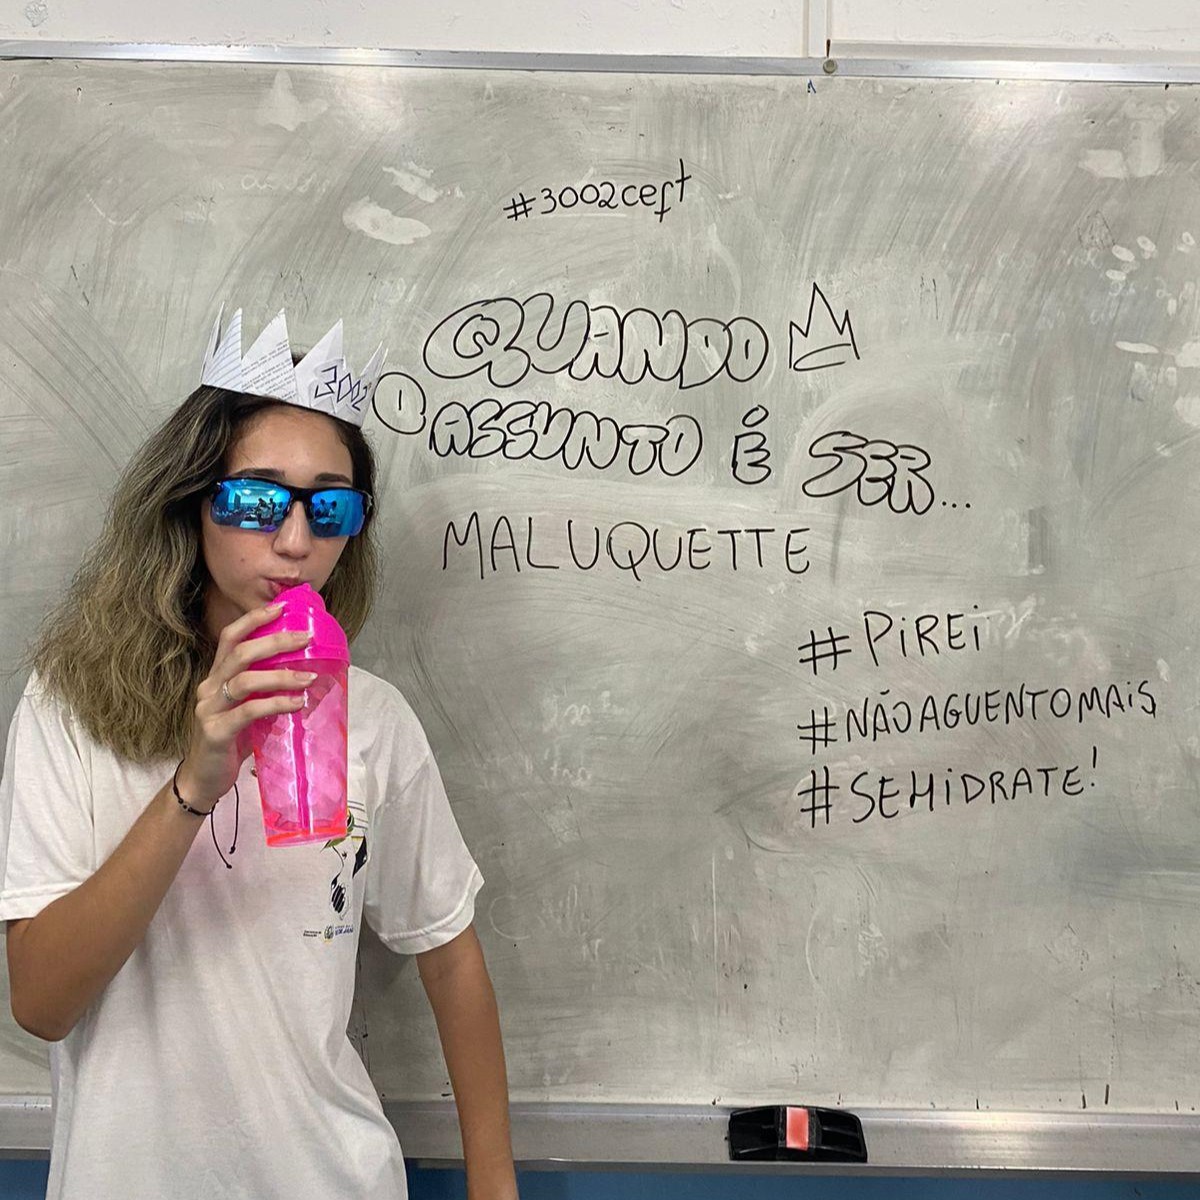 #3002ceft
QUANDO
O ASSUNTO É SER...
MALUQUETTE
#PIREI
#NÃOAGUENTOMAIS
#SEHIDRATE!
3002